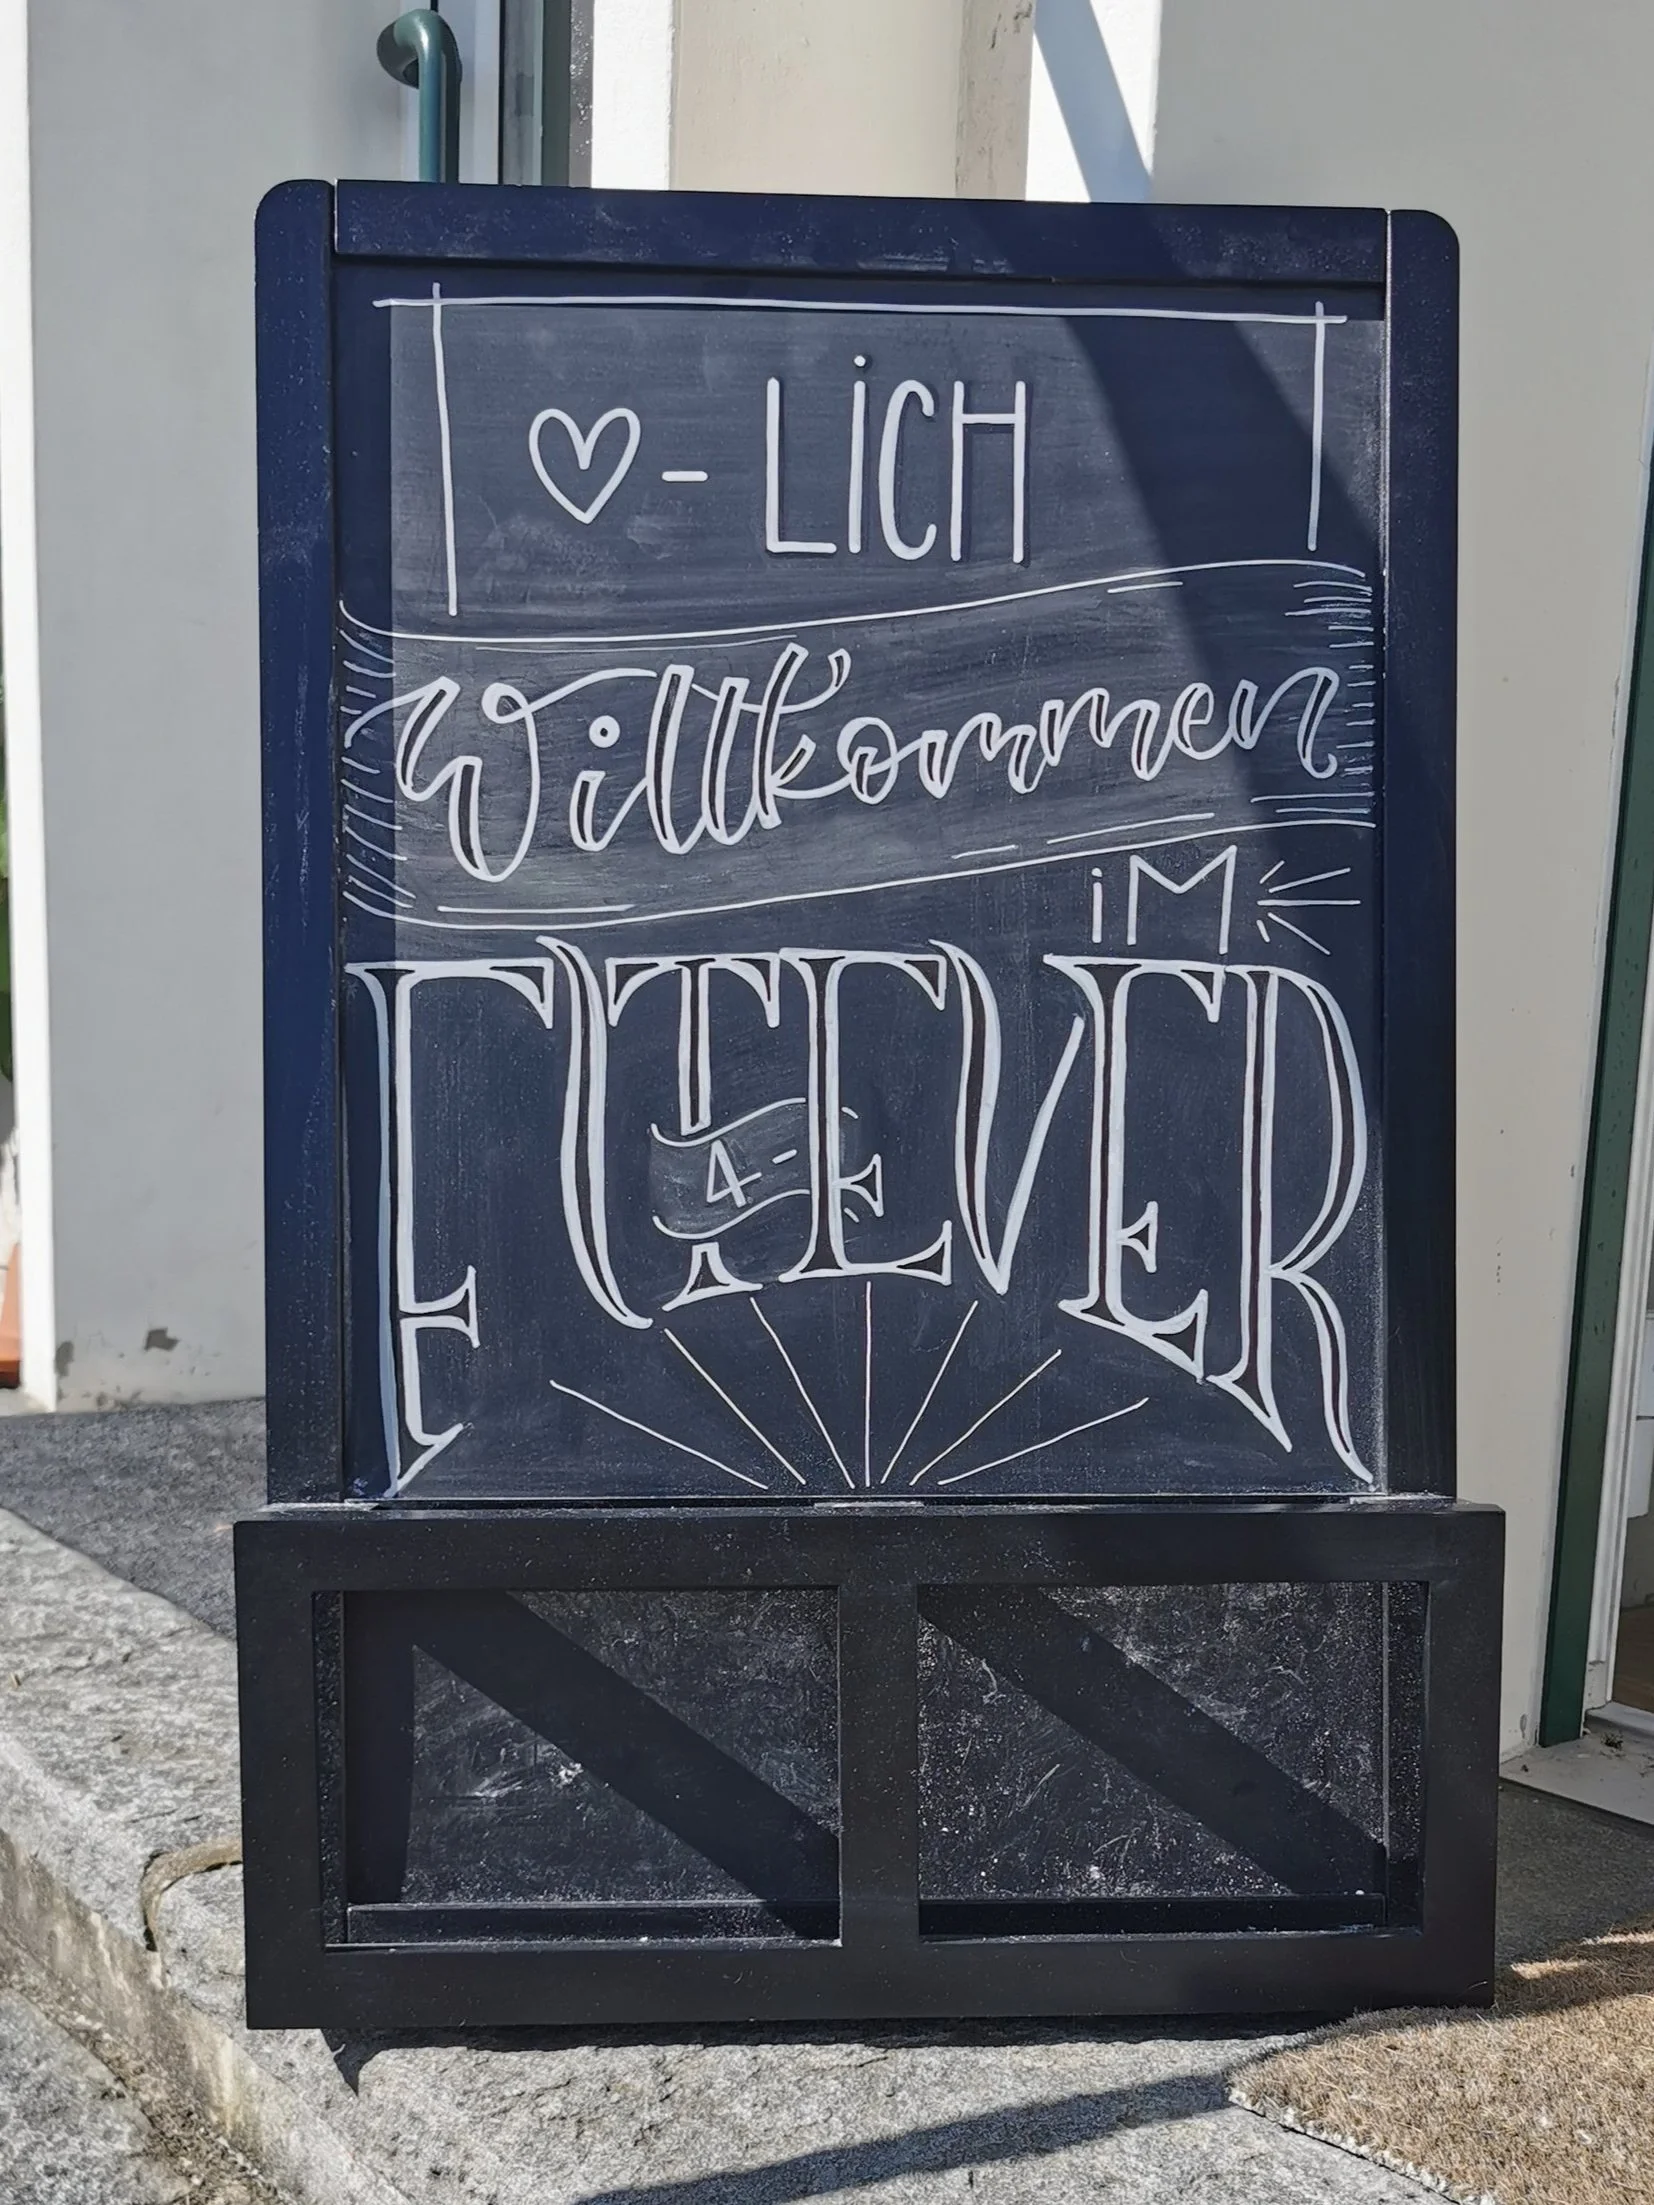 ♡-LiCH
Willkommen
iM
FIT 4-EVER